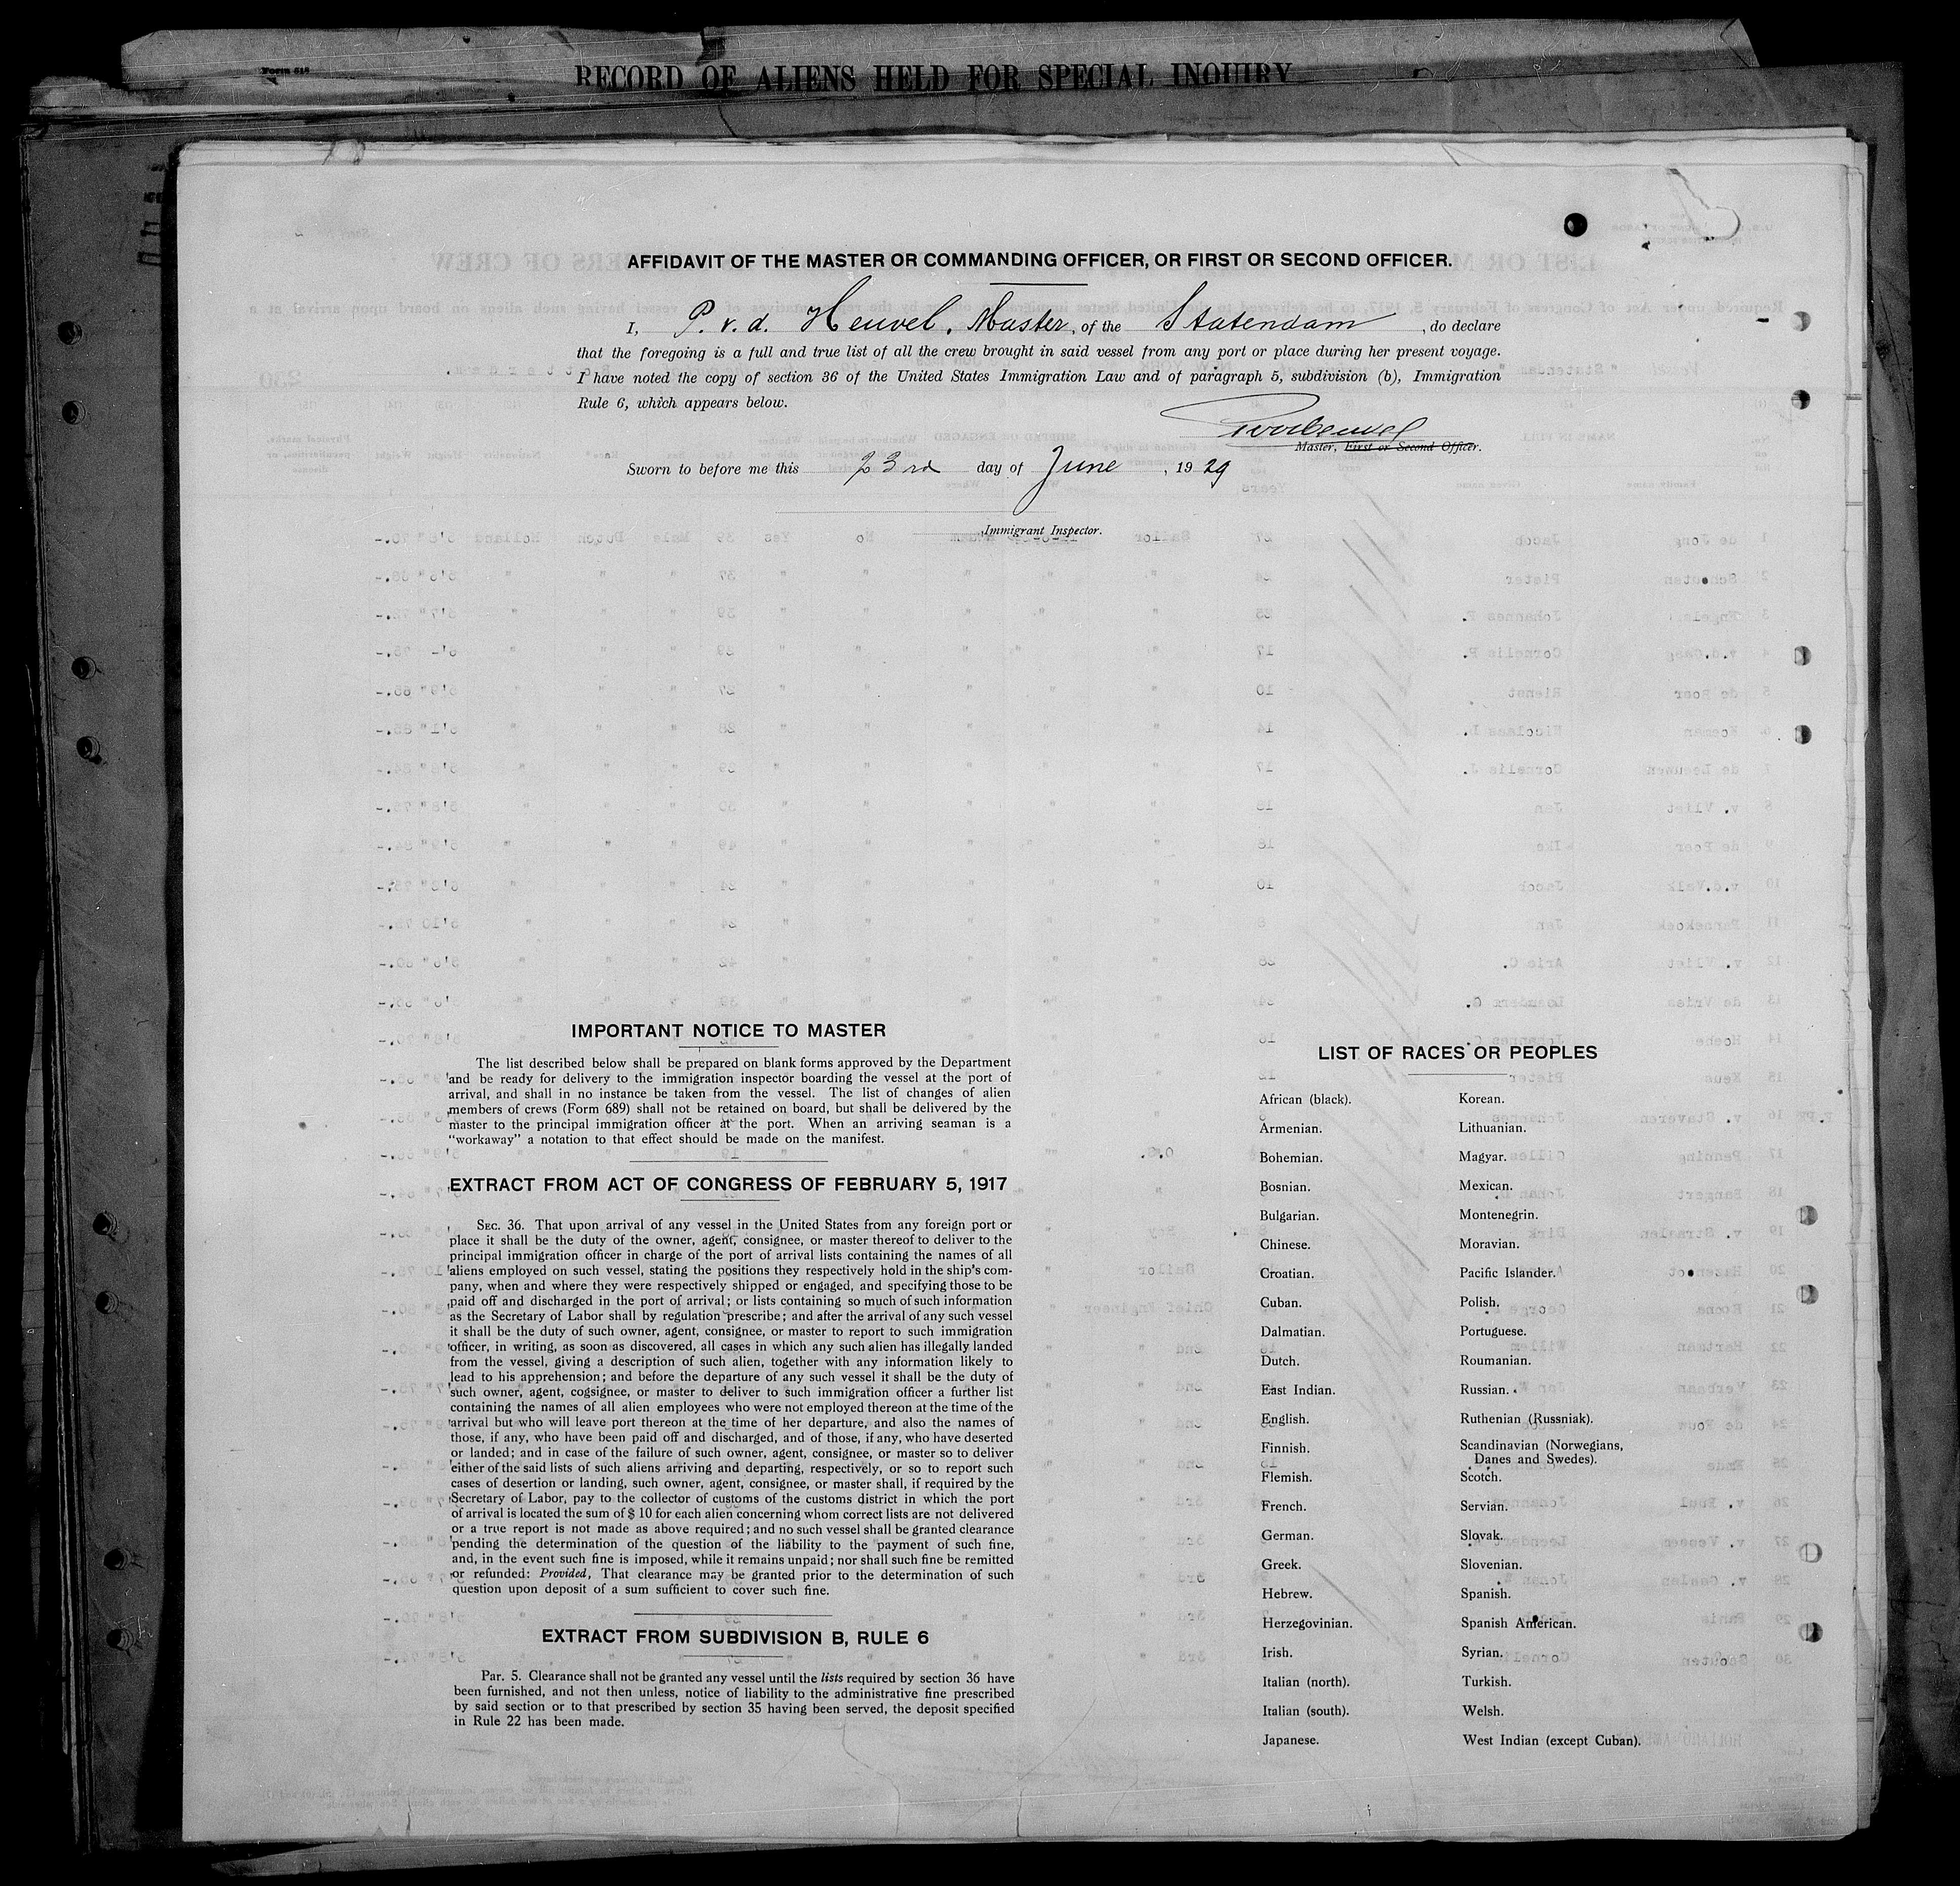 RECORD OF ALIENS HELD FOR SPECIAL INQUIRY
AFFIDAVIT OF THE MASTER OR COMMANDING OFFICER, OR FIRST OR SECOND OFFICER.
I, P. v. d. Heuvel, Master, of the Statendam, do declare
that the foregoing is a full and true list of all the crew brought in said vessel from any port or place during her present voyage.
I have noted the copy of section 36 of the United States Immigration Law and of paragraph 5, subdivision (b), Immigration
Rule 6, which appears below.
Master, First or Second Officer.
Sworn to before me this 23rd day of June, 1929
Immigrant Inspector.
IMPORTANT NOTICE TO MASTER
The list described below shall be prepared on blank forms approved by the Department
and be ready for delivery to the immigration inspector boarding the vessel at the port of
arrival, and shall in no instance be taken from the vessel. The list of changes of alien
members of crews (Form 689) shall not be retained on board, but shall be delivered by the
master to the principal immigration officer at the port. When an arriving seaman is a
"workaway" a notation to that effect should be made on the manifest.
EXTRACT FROM ACT OF CONGRESS OF FEBRUARY 5, 1917
SEC. 36. That upon arrival of any vessel in the United States from any foreign port or
place it shall be the duty of the owner, agent, consignee, or master thereof to deliver to the
principal immigration officer in charge of the port of arrival lists containing the names of all
aliens employed on such vessel, stating the positions they respectively hold in the ship's com-
pany, when and where they were respectively shipped or engaged, and specifying those to be
paid off and discharged in the port of arrival; or lists containing so much of such information
as the Secretary of Labor shall by regulation prescribe; and after the arrival of any such vessel
it shall be the duty of such owner, agent, consignee, or master to report to such immigration
officer, in writing, as soon as discovered, all cases in which any such alien has illegally landed
from the vessel, giving a description of such alien, together with any information likely to
lead to his apprehension; and before the departure of any such vessel it shall be the duty of
such owner, agent, cogsignee, or master to deliver to such immigration officer a further list
containing the names of all alien employees who were not employed thereon at the time of the
arrival but who will leave port thereon at the time of her departure, and also the names of
those, if any, who have been paid off and discharged, and of those, if any, who have deserted
or landed; and in case of the failure of such owner, agent, consignee, or master so to deliver
either of the said lists of such aliens arriving and departing, respectively, or so to report such
cases of desertion or landing, such owner, agent, consignee, or master shall, if required by the
Secretary of Labor, pay to the collector of customs of the customs district in which the port
of arrival is located the sum of $ 10 for each alien concerning whom correct lists are not delivered
or a true report is not made as above required; and no such vessel shall be granted clearance
pending the determination of the question of the liability to the payment of such fine,
and, in the event such fine is imposed, while it remains unpaid; nor shall such fine be remitted
or refunded: Provided, That clearance may be granted prior to the determination of such
question upon deposit of a sum sufficient to cover such fine.
EXTRACT FROM SUBDIVISION B, RULE 6
Par. 5. Clearance shall not be granted any vessel until the lists required by section 36 have
been furnished, and not then unless, notice of liability to the administrative fine prescribed
by said section or to that prescribed by section 35 having been served, the deposit specified
in Rule 22 has been made.
LIST OF RACES OR PEOPLES
African (black).
Armenian.
Bohemian.
Bosnian.
Bulgarian.
Chinese.
Croatian.
Cuban.
Dalmatian.
Dutch.
East Indian.
English.
Finnish.
Flemish.
French.
German.
Greek.
Hebrew.
Herzegovinian.
Irish.
Italian (north).
Italian (south).
Japanese.
Korean.
Lithuanian.
Magyar.
Mexican.
Montenegrin.
Moravian.
Pacific Islander.
Polish.
Portuguese.
Roumanian.
Russian.
Ruthenian (Russniak).
Scandinavian (Norwegians,
Danes and Swedes).
Scotch.
Servian.
Slovak.
Slovenian.
Spanish.
Spanish American.
Syrian.
Turkish.
Welsh.
West Indian (except Cuban).